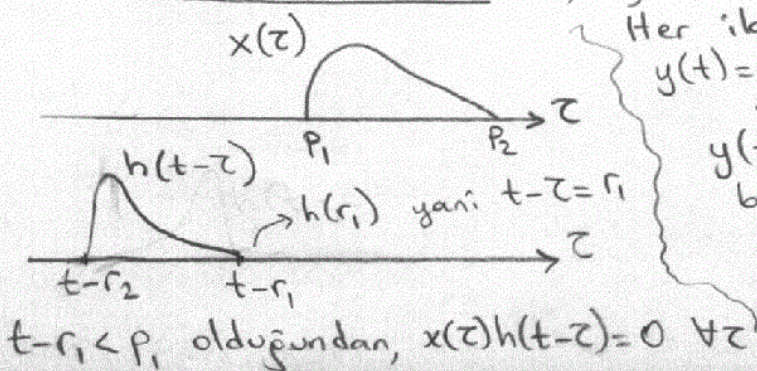 x(τ)
τ
p₁
p₂
h(t-τ)
h(r₁) yani t-τ=r₁
τ
t-r₂
t-r₁
t-r₁<p₁ olduğundan, x(τ)h(t-τ)=0 ∀τ
Her
y(t)=